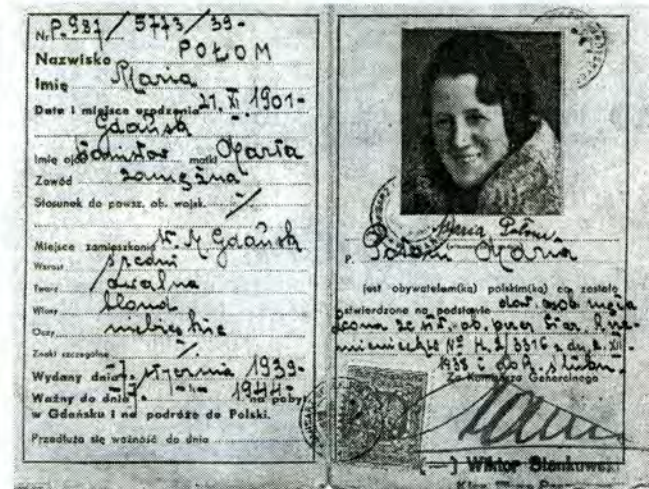 Nr. P-987/5773/39-
Nazwisko POŁOM
Imię Maria
Data i miejsce urodzenia 21. XI 1901-
Gdańsk
Imię ojca Stanisław matki Marta
Zawód zamężna
Stosunek do powsz. ob. wojsk. -/-
Miejsce zamieszkania W. M Gdańsk
Wzrost średni
Twarz owalna
Włosy blond
Oczy niebieskie
Znaki szczególne
Wydany dnia 7. stycznia 1939-
Ważny do dnia 7. -"- 1944- na pobyt
w Gdańsku i na podróże do Polski.
Przedłuża się ważność do dnia
Maria Połom
P. Połom Maria
jest obywatelem(ką) polskim(ką) co zostało
stwierdzone na podstawie dow. osob.
ob. przez Star.
Nr
1938 i dok. ślubu.
Za Komisarza Generalnego
(—) Wiktor